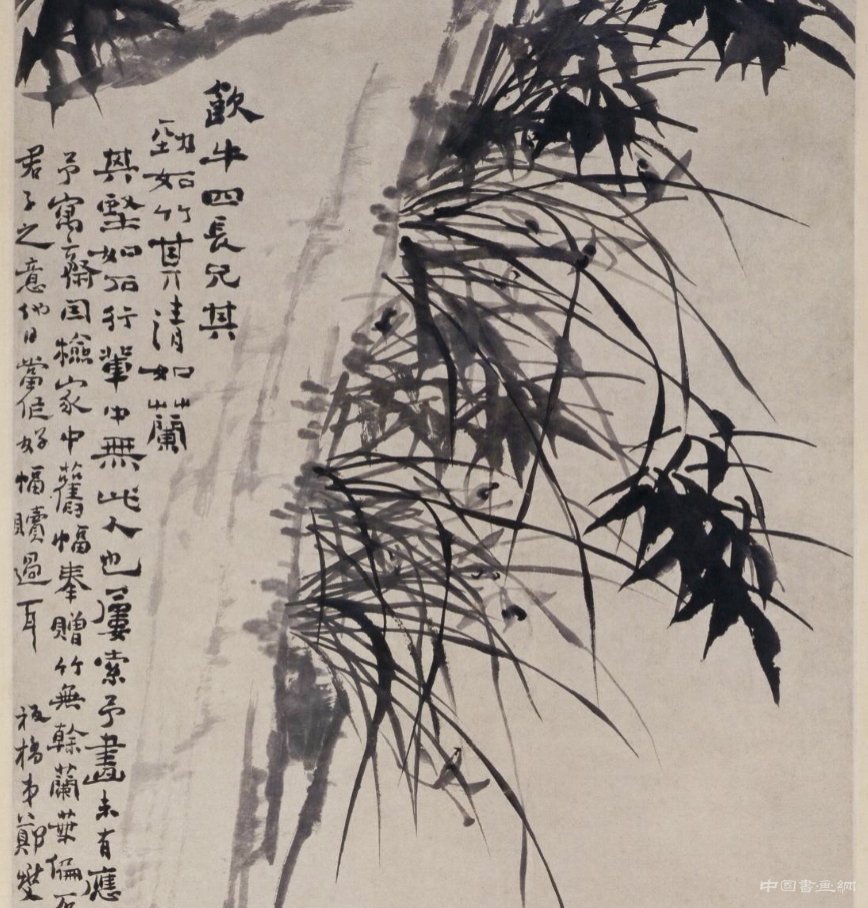 飲牛四長兄其
勁如竹其清如蘭
其堅如石行輩中無此人也屢索予畫未有應
予寓齋因檢家中舊幅奉贈竹無幹蘭葉偏石
君子之意他日當作好幅贖過耳 板橋弟鄭燮
中国書画網